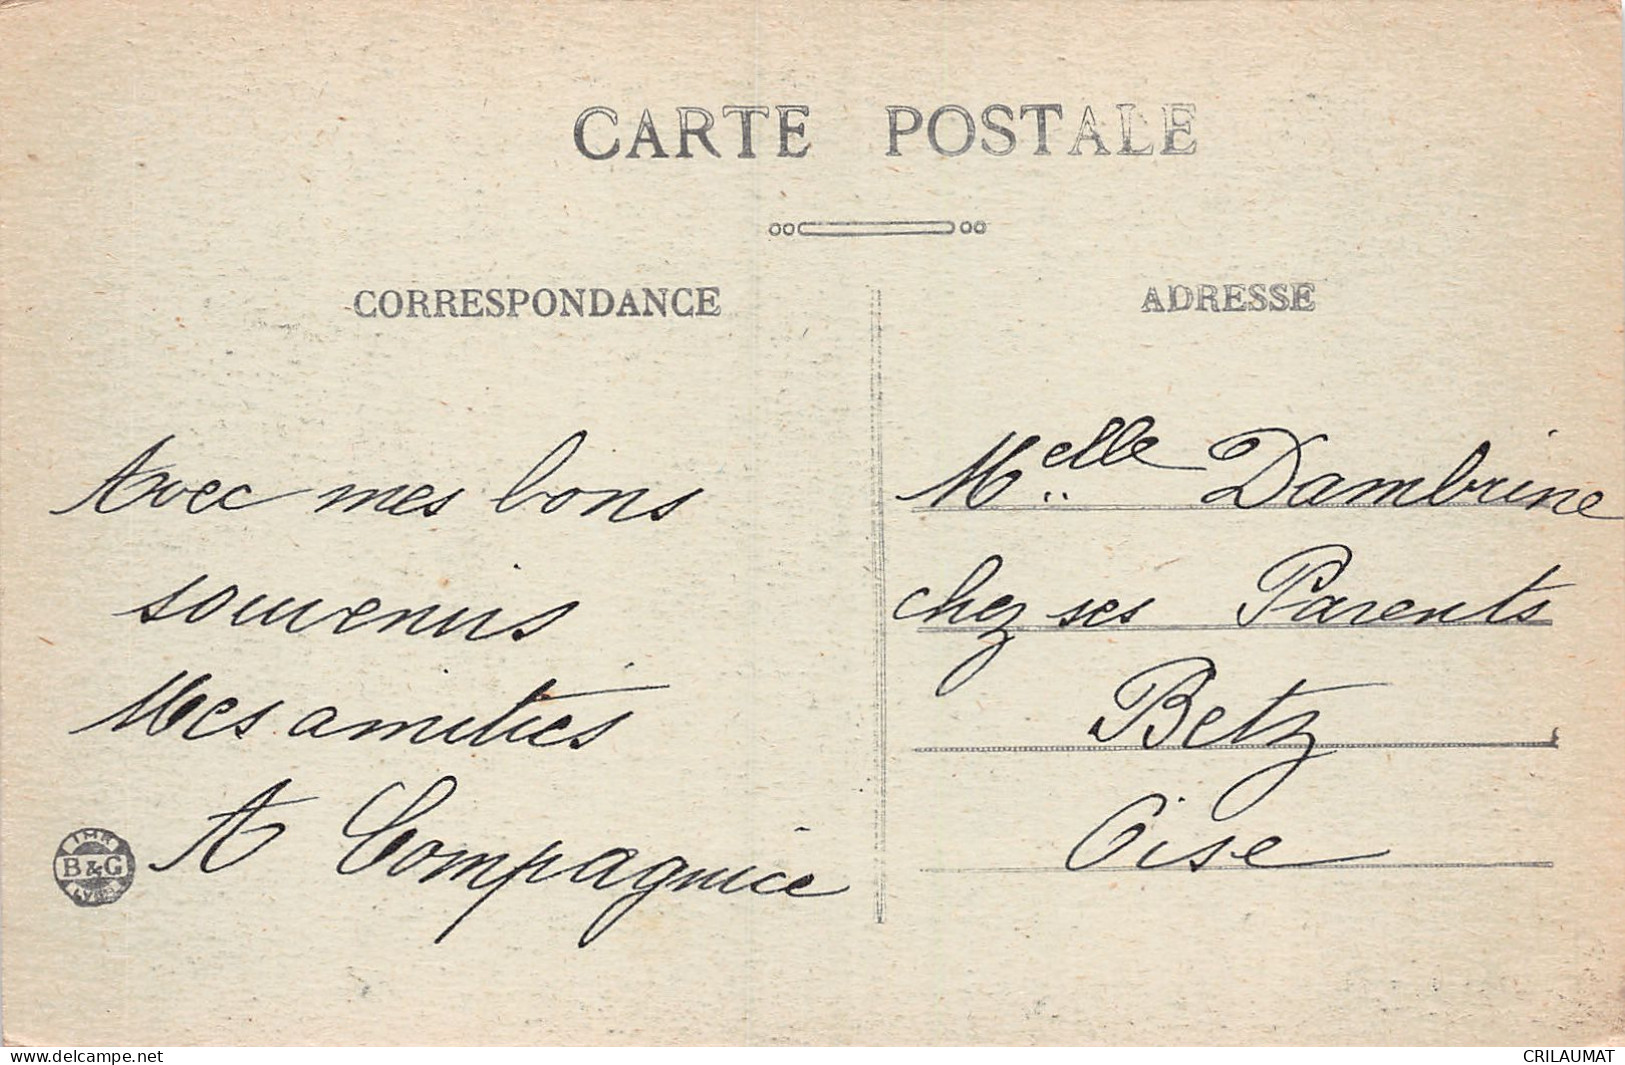 CARTE POSTALE
CORRESPONDANCE
ADRESSE
Avec mes bons
souvenirs
Mes amitiés
A Compagnice
Melle Dambrine
chez ses Parents
Betz
Oise
IMP.
B & G
LYON
www.delcampe.net
CRILAUMAT